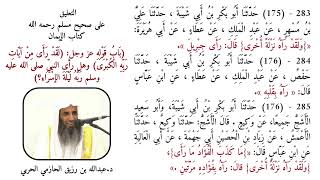 التعليق
على صحيح مسلم رحمه الله
كتاب الإيمان
(بَاب قَوْلِهِ عَزَّ وَجَلَّ: (لَقَدْ رَأَى مِنْ آيَاتِ
رَبِّهِ الْكُبْرَى) وهل رأى النبي صلى الله عليه
وسلم رَبَّهُ لَيْلَةَ الْإِسْرَاءِ؟)
د.عبدالله بن رزيق الحازمي الحربي
283 - (175) حَدَّثَنَا أَبُو بَكْرِ بْنُ أَبِي شَيْبَةَ ، حَدَّثَنَا عَلِيُّ
بْنُ مُسْهِرٍ عَنْ عَبْدِ الْمَلِكِ ، عَنْ عَطَاءٍ ، عَنْ أَبِي هُرَيْرَةَ،
﴿وَلَقَدْ رَآهُ نَزْلَةً أُخْرَى﴾ قَالَ: رَأَى جِبْرِيلَ.
284 - (176) حَدَّثَنَا أَبُو بَكْرِ بْنُ أَبِي شَيْبَةَ ، حَدَّثَنَا
حَفْصٌ ، عَنْ عَبْدِ الْمَلِكِ ، عَنْ عَطَاءٍ ، عَنِ ابْنِ عَبَّاسٍ
قَالَ: رَآهُ بِقَلْبِهِ.
285 - (176) حَدَّثَنَا أَبُو بَكْرِ بْنُ أَبِي شَيْبَةَ ، وَأَبُو سَعِيدٍ
الْأَشَجُّ جَمِيعًا، عَنْ وَكِيعٍ ، قَالَ الْأَشَجُّ: حَدَّثَنَا وَكِيعٌ، حَدَّثَنَا
الْأَعْمَشُ، عَنْ زِيَادِ بْنِ الْحُصَيْنِ أَبِي جَهْمَةَ، عَنْ أَبِي الْعَالِيَةِ
عَنِ ابْنِ عَبَّاسٍ، قَالَ: ﴿مَا كَذَبَ الْفُؤَادُ مَا رَأَى﴾
﴿وَلَقَدْ رَآهُ نَزْلَةً أُخْرَى﴾ قَالَ: رَآهُ بِفُؤَادِهِ مَرَّتَيْنِ.